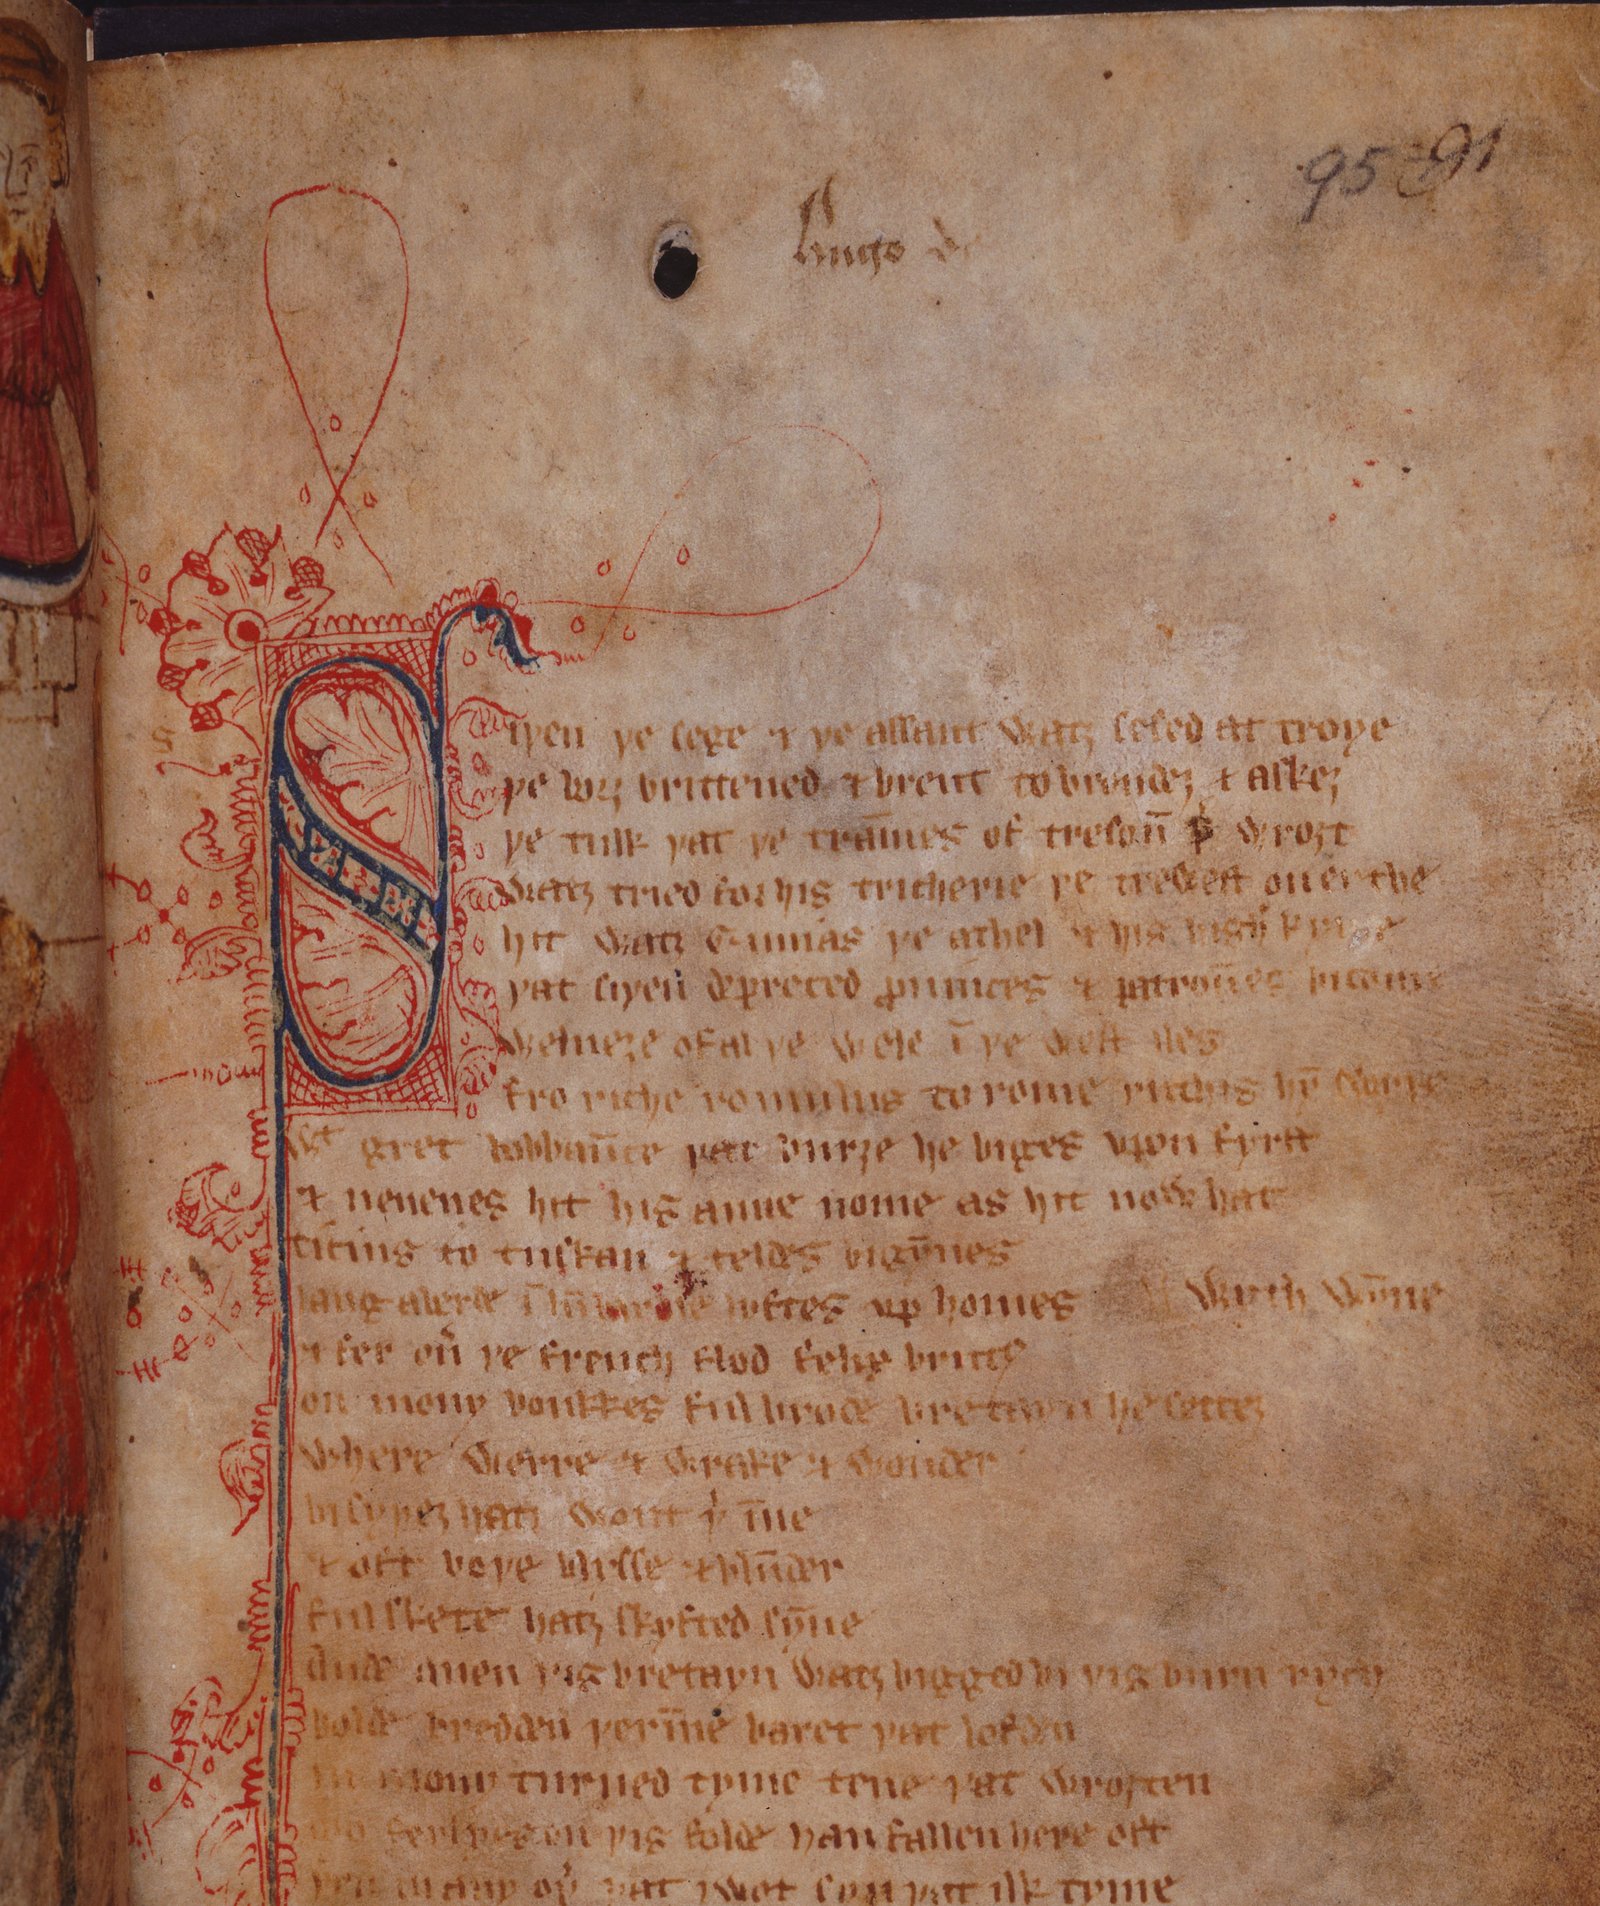 95 91
Hugo de
Siþen þe sege & þe assaut watȝ sesed at troye
þe borȝ brittened & brent to brondeȝ & askeȝ
þe tulk þat þe tram̄es of tresoūn þ̛ wroȝt
watȝ tried for his tricherie þe trewest on erthe
hit watȝ Ennias þe athel & his highe kynde
þat siþen depreced prouinces & patroūnes bicome
welneȝe of al þe wele ī þe west iles
fro riche romulus to rome ricchis hȳ swyþe
wᵗ gret bobbaūnce þat burȝe he biges vpon fyrst
& neuenes hit his aune nome as hit now hat
ticius to tuskan & teldes bigȳnes
langaberde ī lūmbardie lyftes vp homes
wyth wȳne
& fer oū þe french flod felix brutꝰ
on mony bonkkes ful brode bretayn he setteȝ
where werre & wrake & wonder
bi syþeȝ hatȝ wont þ̛ īne
& oft boþe blysse & blūnder
ful skete hatȝ skyfted sȳne
Ande quen þis bretayn watȝ bigged bi þis burn rych
bolde bredden þerīne baret þat lofden
in mony turned tyme tene þat wroȝten
mo ferlyes on þis folde han fallen here oft
þen in any oþ̛ þat I wot syn þat ilk tyme